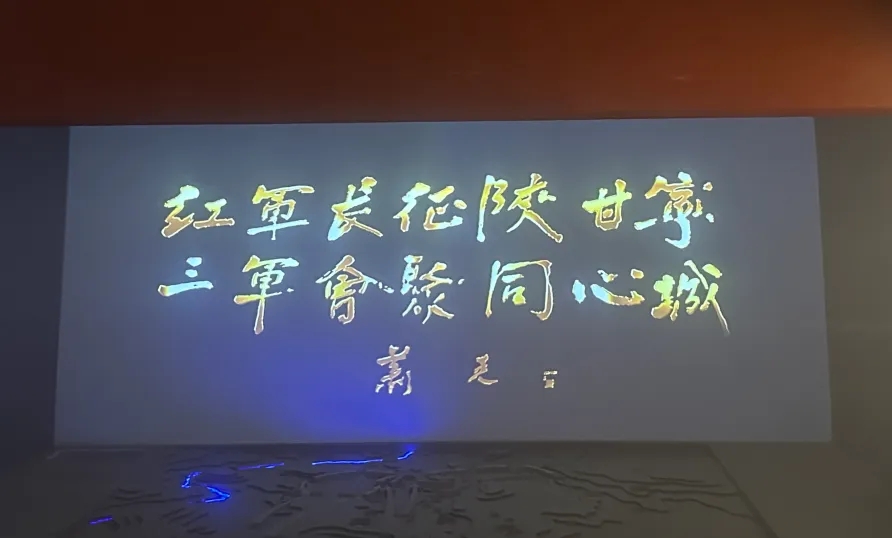 紅軍長征陝甘寧
三軍會聚同心城
蕭克